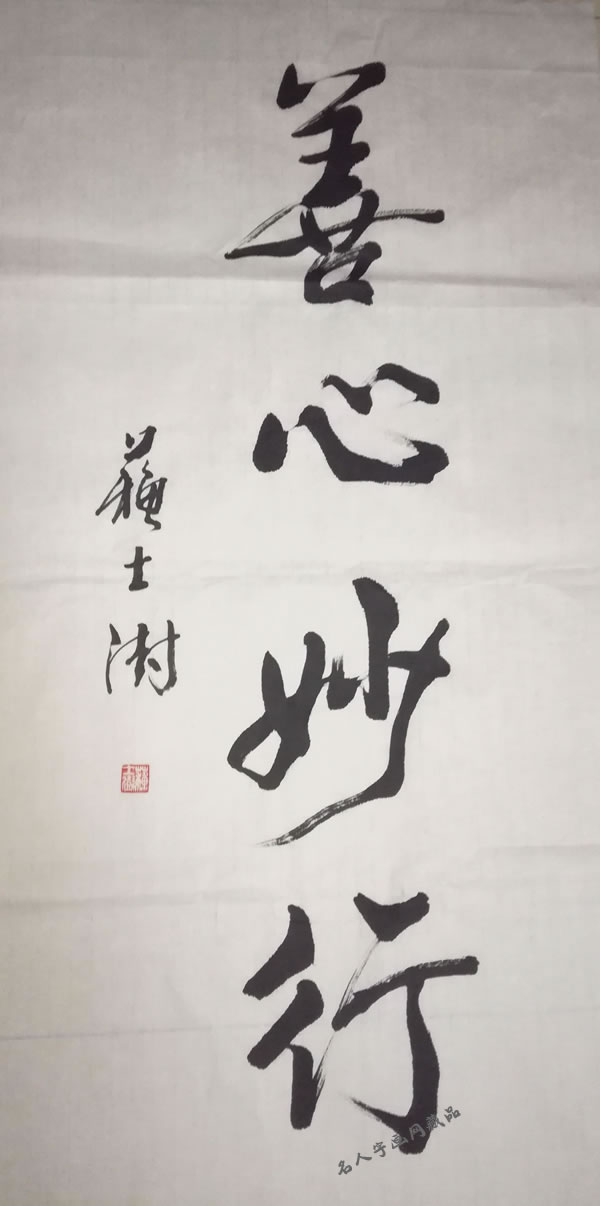 善心妙行
蘓士澍
名人字画网藏品